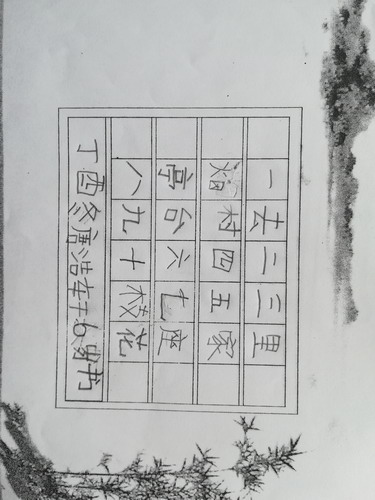 一去二三里
烟村四五家
亭台六七座
八九十枝花
丁酉冬唐浩岁书